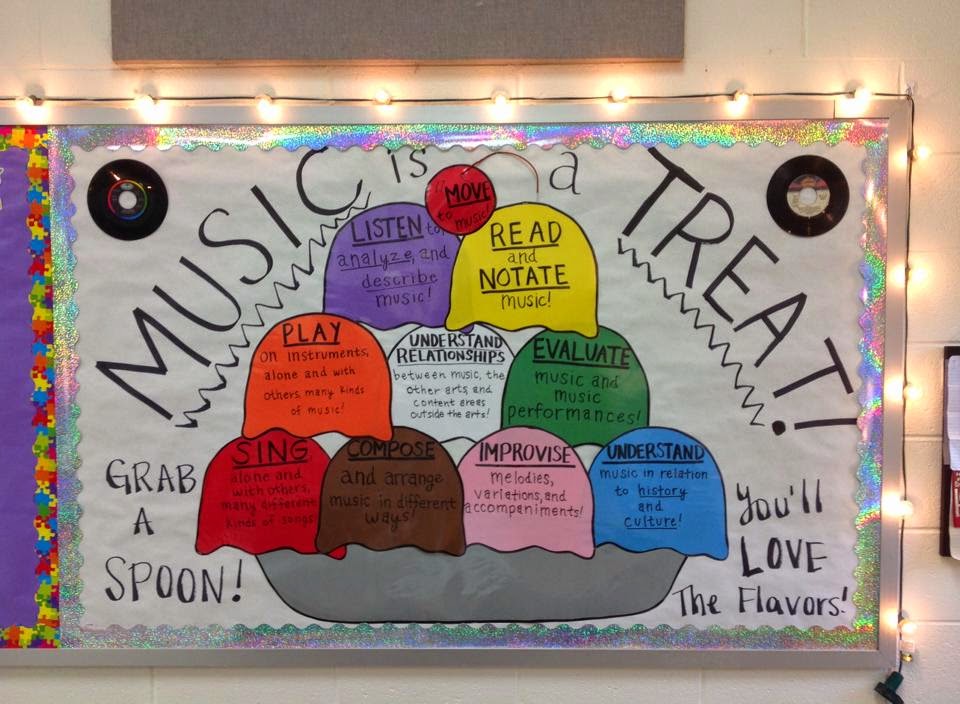 MUSIC is a TREAT!
MOVE
to music!
LISTEN to,
analyze, and
describe
music!
READ
and
NOTATE
music!
PLAY
on instruments,
alone and with
others, many kinds
of music!
UNDERSTAND
RELATIONSHIPS
between music, the
other arts, and
content areas
outside the arts!
EVALUATE
music and
music
performances!
SING
alone and
with others,
many different
kinds of songs
COMPOSE
and arrange
music in different
ways!
IMPROVISE
melodies,
variations, and
accompaniments!
UNDERSTAND
music in relation
to history
and
culture!
GRAB
A
SPOON!
You'll
LOVE
The Flavors!